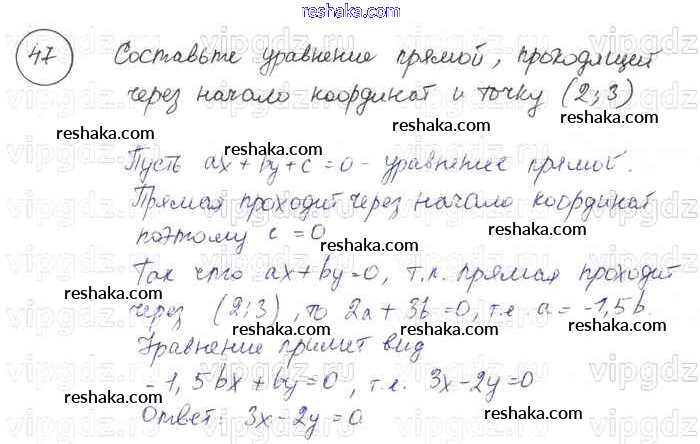 reshaka.com
47 Составьте уравнение прямой, проходящей
через начало координат и точку (2;3)
reshaka.com reshaka.com reshaka.com
Пусть ax + by + c = 0 - уравнение прямой.
reshaka.com reshaka.com
Прямая проходит через начало координат
поэтому c = 0
reshaka.com reshaka.com
Так что ax + by = 0, т.к. прямая проходит
reshaka.com reshaka.com
через (2;3), то 2a + 3b = 0, т.е. a = -1,5b.
reshaka.com reshaka.com
Уравнение примет вид
reshaka.com reshaka.com
-1,5bx + by = 0, т.е. 3x - 2y = 0
reshaka.com reshaka.com
Ответ: 3x - 2y = 0
reshaka.com reshaka.com